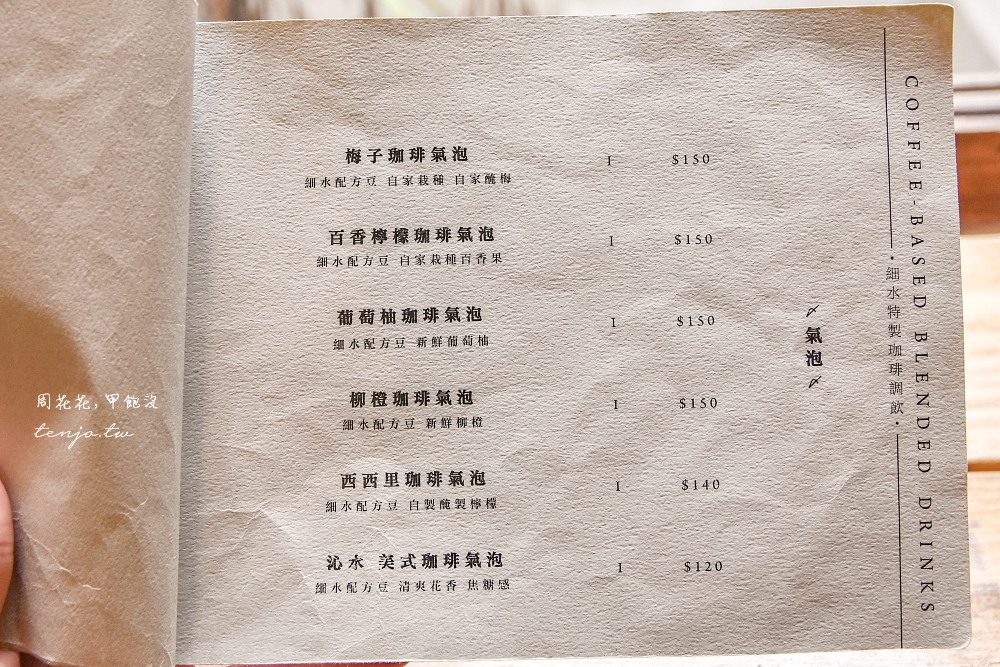 COFFEE-BASED BLENDED DRINKS
·細水特製珈琲調飲·
〆氣泡〆
梅子珈琲氣泡 I $150
細水配方豆 自家栽種 自家醃梅
百香檸檬珈琲氣泡 I $150
細水配方豆 自家栽種百香果
葡萄柚珈琲氣泡 I $150
細水配方豆 新鮮葡萄柚
柳橙珈琲氣泡 I $150
細水配方豆 新鮮柳橙
西西里珈琲氣泡 I $140
細水配方豆 自製醃製檸檬
沁水 美式珈琲氣泡 I $120
細水配方豆 清爽花香 焦糖感
周花花,甲飽沒
tenjo.tw